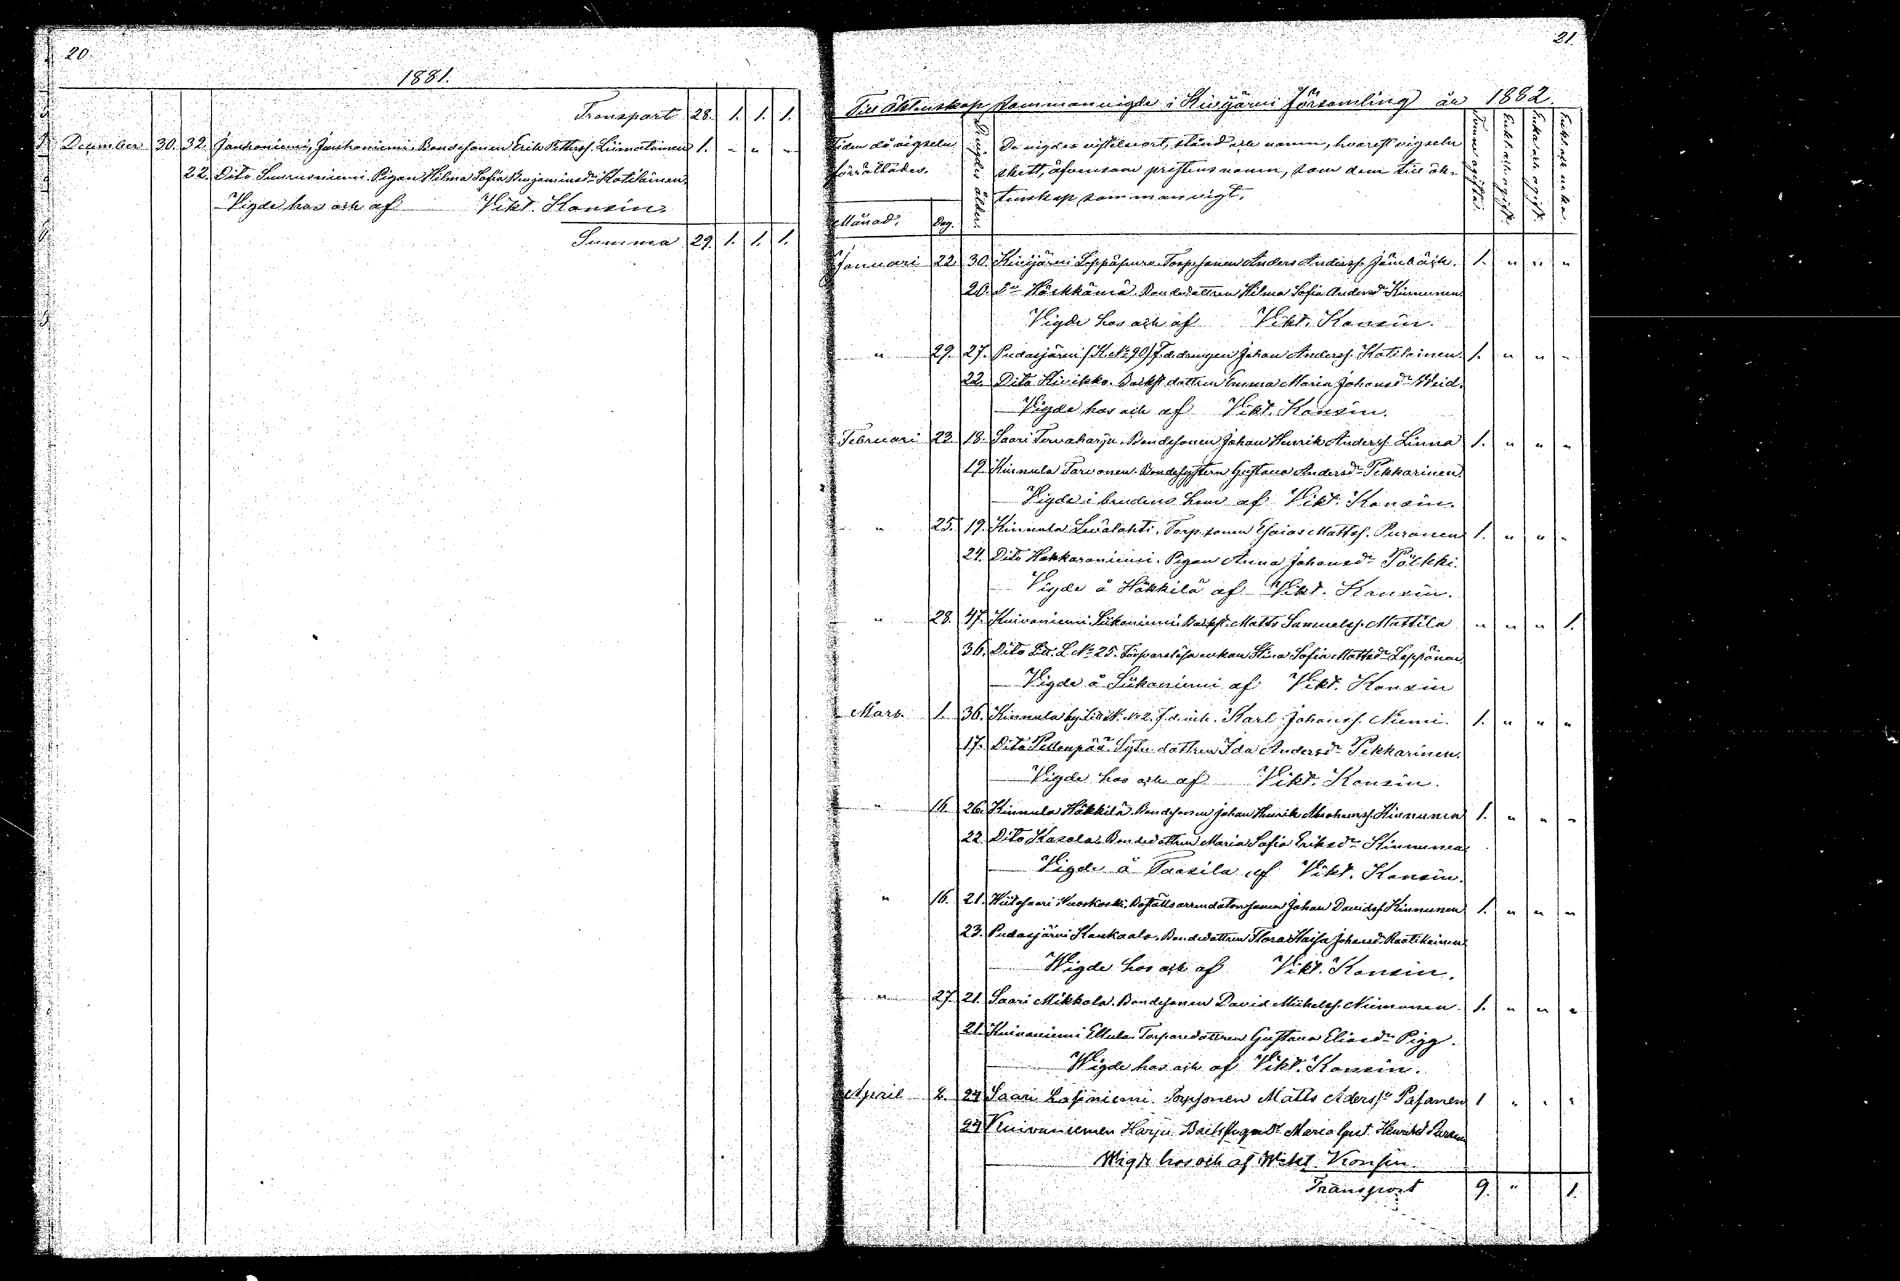 20.
1881.
Transport 28. 1. 1. 1.
December 30. 32. Jauhoniemi, Jauhoniemi. Bondesonen Erik Petterss. Linnalainen 1. " " "
22. Dito Suurusniemi. Pigan Hilma Sofia Benjaminsdr Kotilainen.
Vigde hos och af Vikt. Konsin.
Summa 29. 1. 1. 1.
21.
Till äktenskap sammanvigde i Kivijärvi församling år 1882.
Tiden då vigseln förrättades.
Månad. Dag.
De vigdes ålder.
De vigdes vistelseort, stånd och namn, hvarest vigseln
skett, äfvensom prestens namn, som dem till äk-
tenskap sammanvigt.
Januari 22 30. Kivijärvi Leppäpuro. Torp.sonen Anders Anderss. Jämbäck. 1. " " "
20. Do Häkkämä. Bondedottren Hilma Sofia Andersdr Kinnunen
Vigde hos och af Vikt. Konsin.
" 29. 27. Pudasjärvi (K. No 90) F.d. drängen Johan Anderss. Kotilainen. 1. " " "
22. Dito Kivikko. Backst. dottren Emma Maria Johansdr Weid.
Vigde hos och af Vikt. Konsin.
Februari 23. 18. Saari Tervaharju. Bondesonen Johan Henrik Anderss. Linna 1. " " "
19. Kinnula Tarvonen. Bondesystern Gustava Andersdr Pekkarinen.
Vigde i brudens hem af Vikt. Konsin.
" 25. 19. Kinnula Levälahti. Torp.sonen Esaias Mattss. Puranen 1. " " "
24. Dito Hakkaraniemi. Pigan Anna Johansdr Pölkki.
Vigde å Häkkilä af Vikt. Konsin.
" 28. 47. Kuivaniemi Siikaniemi. Backst. Matts Samuelss. Mattila " " " 1.
36. Dito Litt. L No 25. Försvarslösa enkan Stina Sofia Mattsdr Leppänen.
Vigde å Siikaniemi af Vikt. Konsin
Mars. 1. 36. Kinnula by Litt. No 2. F.d. Karl Johanss. Niemi. 1. " " "
17. Dito Pellonpää. dottren Ida Andersdr Pekkarinen.
Vigde hos och af Vikt. Konsin.
" 16. 26. Kinnula Häkkilä. Bondesonen Johan Henrik Abrahamss. Kinnunen 1. " " "
22. Dito Kasala. Bondedottren Maria Sofia Eriksdr Kinnunen.
Vigde å Taasila af Vikt. Konsin.
" 16. 21. Hiitosaari Huoskoski. Boställsarrendatorsonen Johan Davidss. Kinnunen 1. " " "
23. Pudasjärvi Kankaala. Bondedottren Flora Kaisa Johansd. Raatikainen
Wigde hos och af Vikt. Konsin.
" 27. 21. Saari Mikkola. Bondesonen David Michelss. Niemonen. 1. " " "
21. Kuivaniemi Ellula. Torparedottren Gustava Eliasdr Pigg.
Wigde hos och af Vikt. Konsin.
April 2. 24 Saari Lapinniemi. Torpsonen Matts Aderss. Pasanen 1 " " "
24 Kuivaniemen Harju. Maria Gust. Henriksd.
Wigde hos och af Wikt. Konsin.
Transport 9. " 1.